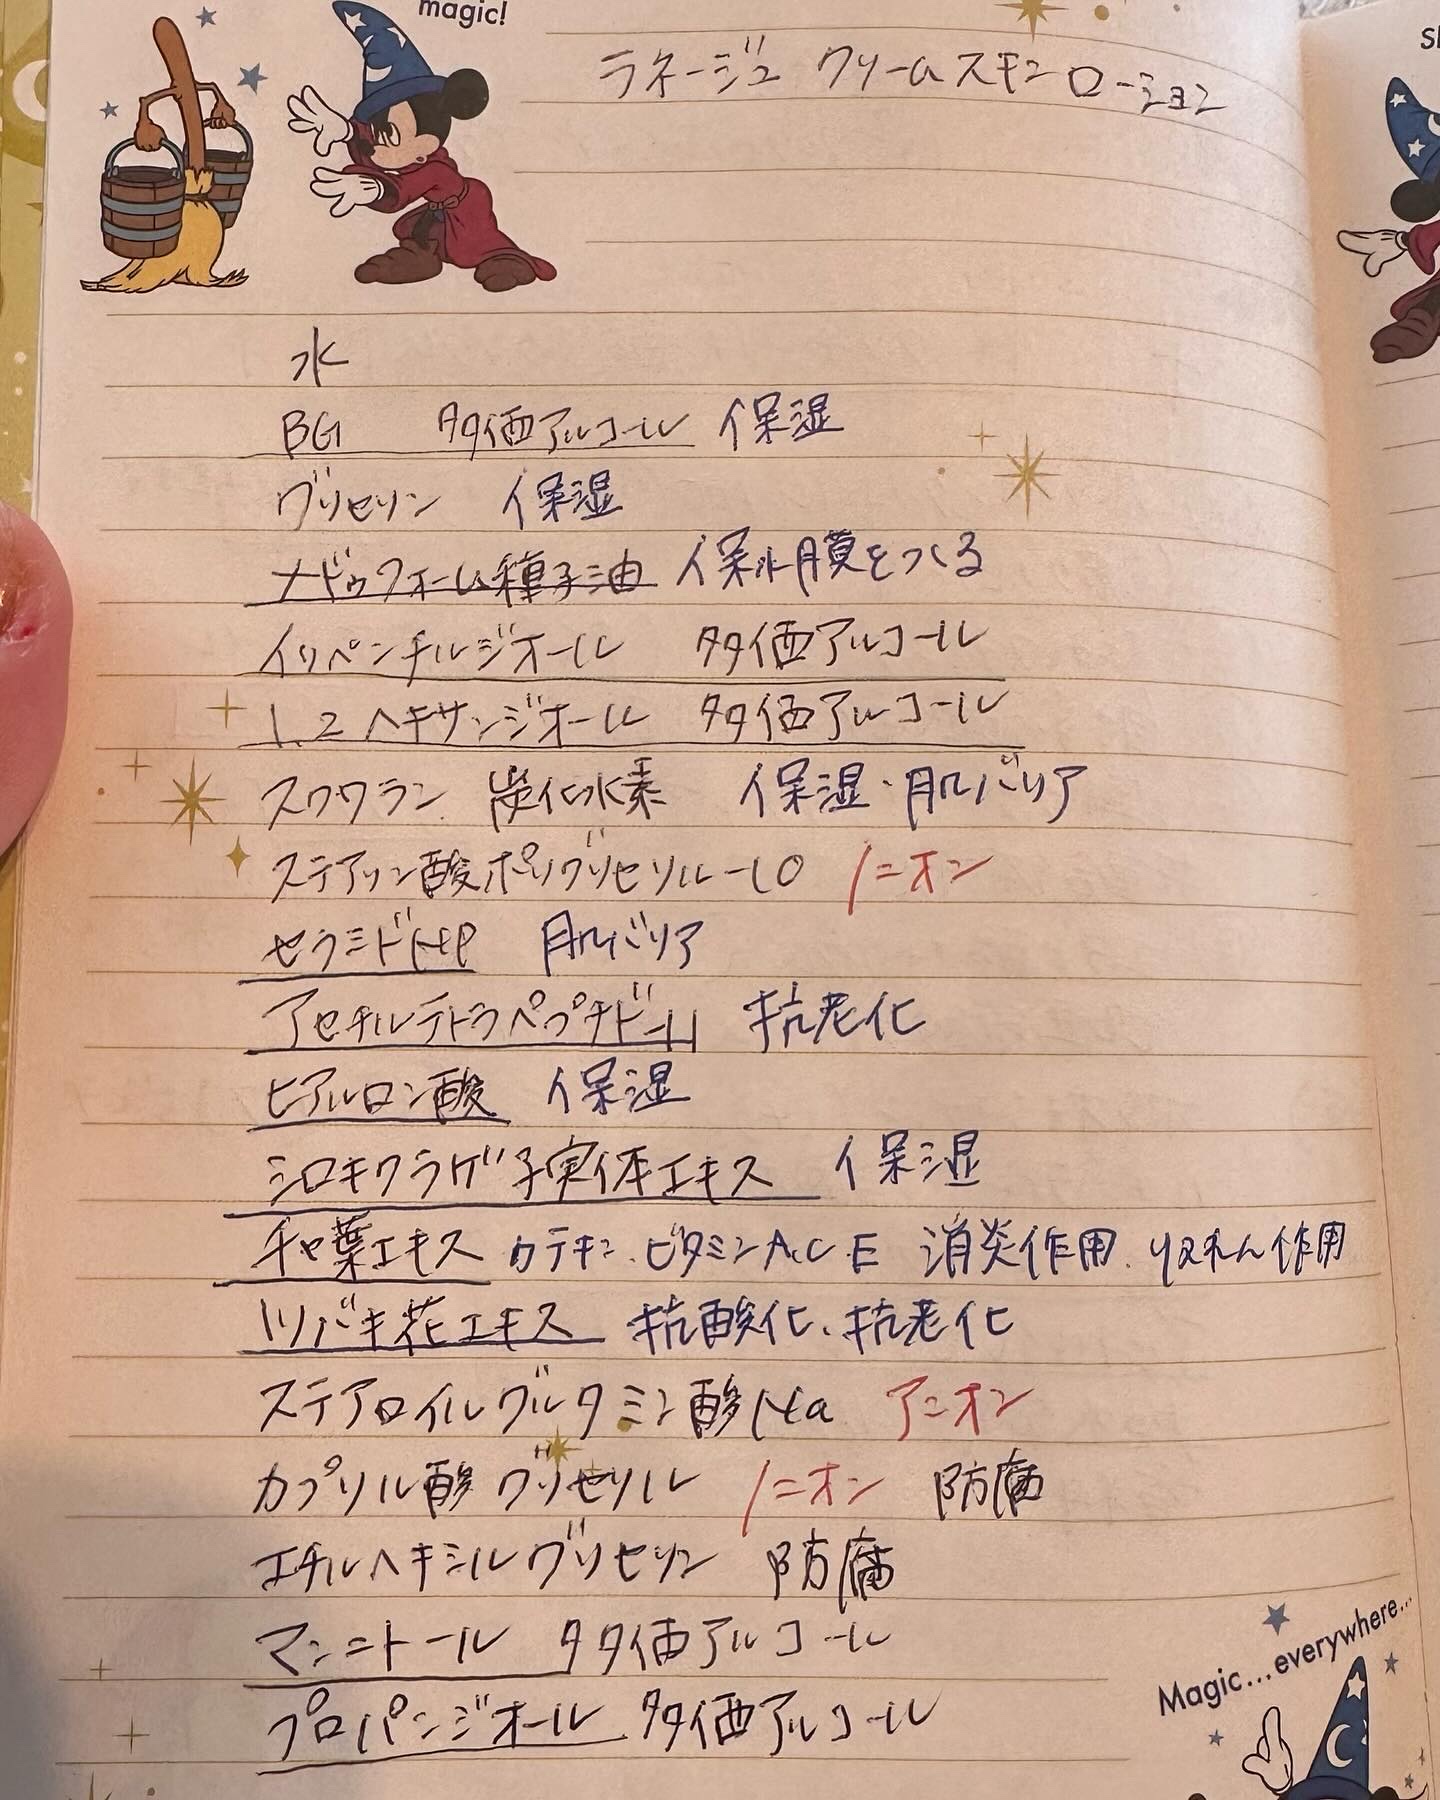 magic!
ラネージュ クリームスキン ローション
水
BG 多価アルコール 保湿
グリセリン 保湿
メドウフォーム種子油 保水膜をつくる
イソペンチルジオール 多価アルコール
1.2ヘキサンジオール 多価アルコール
スクワラン 炭化水素 保湿・肌バリア
ステアリン酸ポリグリセリル-10 ノニオン
セラミドNP 肌バリア
アセチルテトラペプチド-11 抗老化
ヒアルロン酸 保湿
シロキクラゲ子実体エキス 保湿
チャ葉エキス カテキン、ビタミンA、C、E 消炎作用、収れん作用
ツバキ花エキス 抗酸化、抗老化
ステアロイルグルタミン酸Na アニオン
カプリル酸グリセリル ノニオン 防腐
エチルヘキシルグリセリン 防腐
マンニトール 多価アルコール
プロパンジオール 多価アルコール
Magic...everywhere...